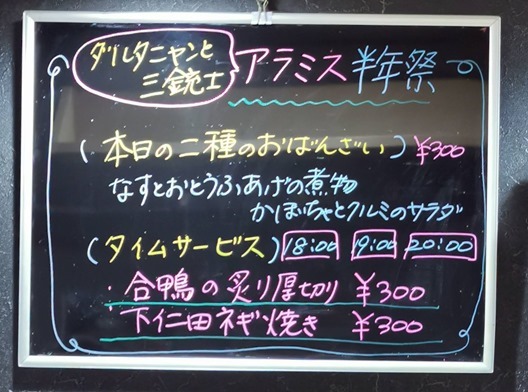 ダルタニャンと
三銃士
アラミス 半年祭
(本日の二種のおばんざい) ¥300
なすとおとうふあげの煮物
かぼちゃとクルミのサラダ
(タイムサービス) 18:00 19:00 20:00
・合鴨の炙り厚切り ¥300
下仁田ネギ焼き ¥300